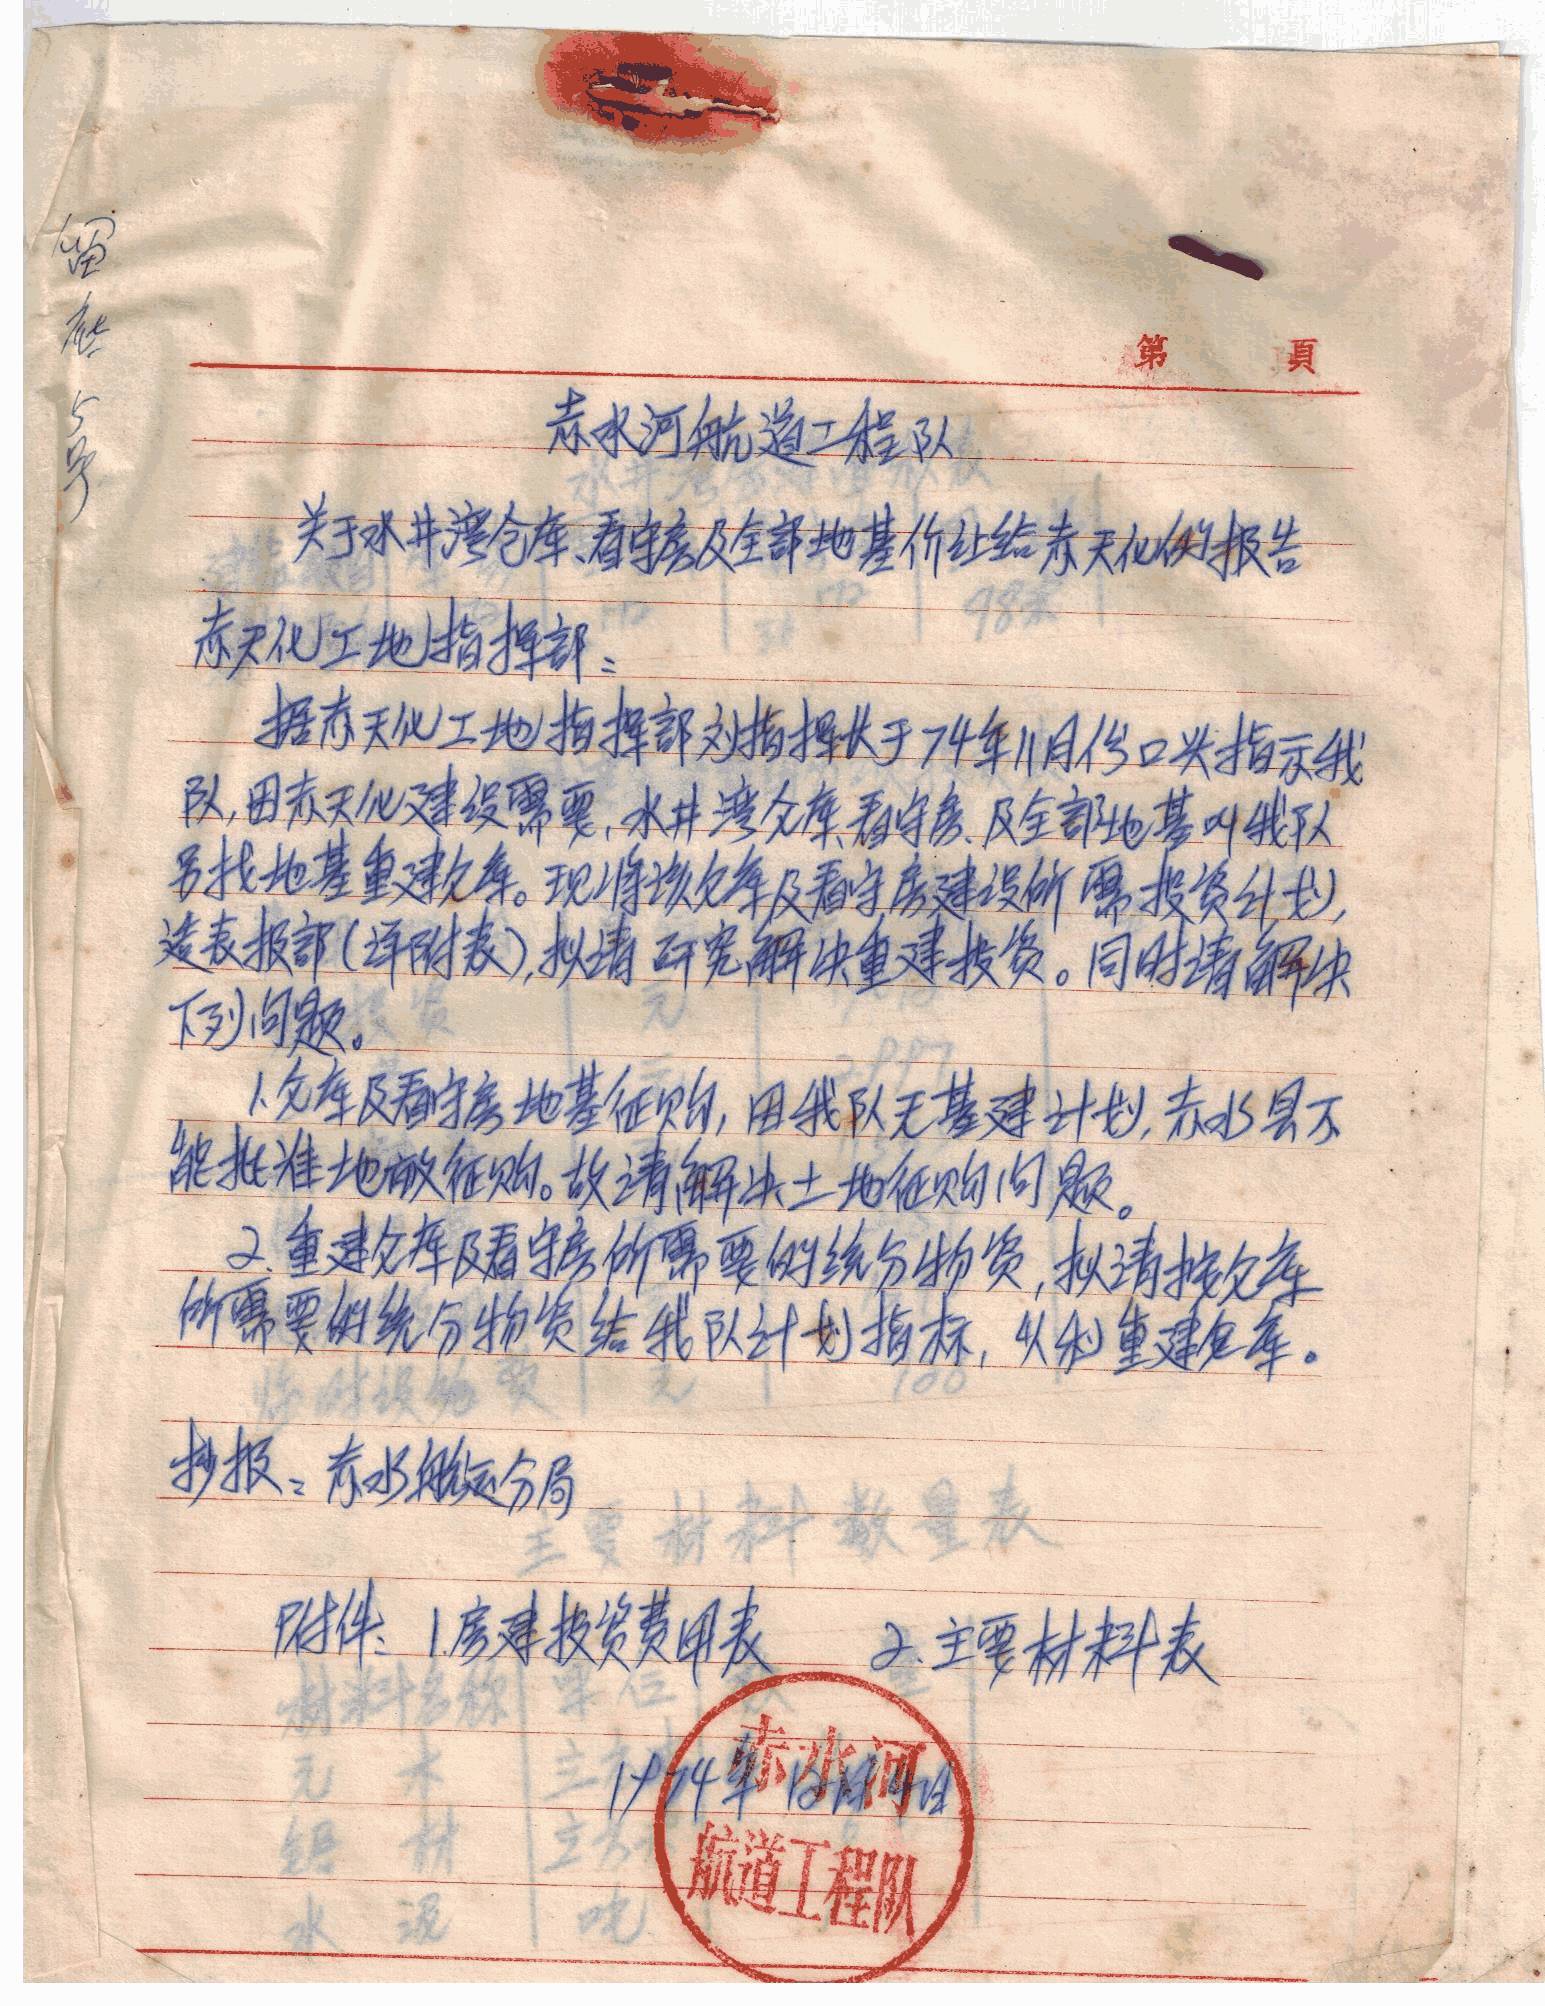 留底5号
第 頁
赤水河航道工程队
关于水井湾仓库、看守房及全部地基价让给赤天化的报告
赤天化工地指挥部：
据赤天化工地指挥部刘指挥长于74年11月份口头指示我
队，因赤天化建设需要，水井湾仓库、看守房、及全部地基叫我队
另找地基重建仓库。现将该仓库及看守房建设所需投资计划，
造表报部（详附表），拟请研究解决重建投资。同时请解决
下列问题。
1.仓库及看守房地基征购，因我队无基建计划，赤水县不
能批准地敏征购。故请解决土地征购问题。
2.重建仓库及看守房所需要的统分物资，拟请按仓库
所需要的统分物资给我队计划指标，以利重建仓库。
抄报：赤水航运分局
附件：1.房建投资费用表 2.主要材料表
1974年12月 日
赤水河
航道工程队